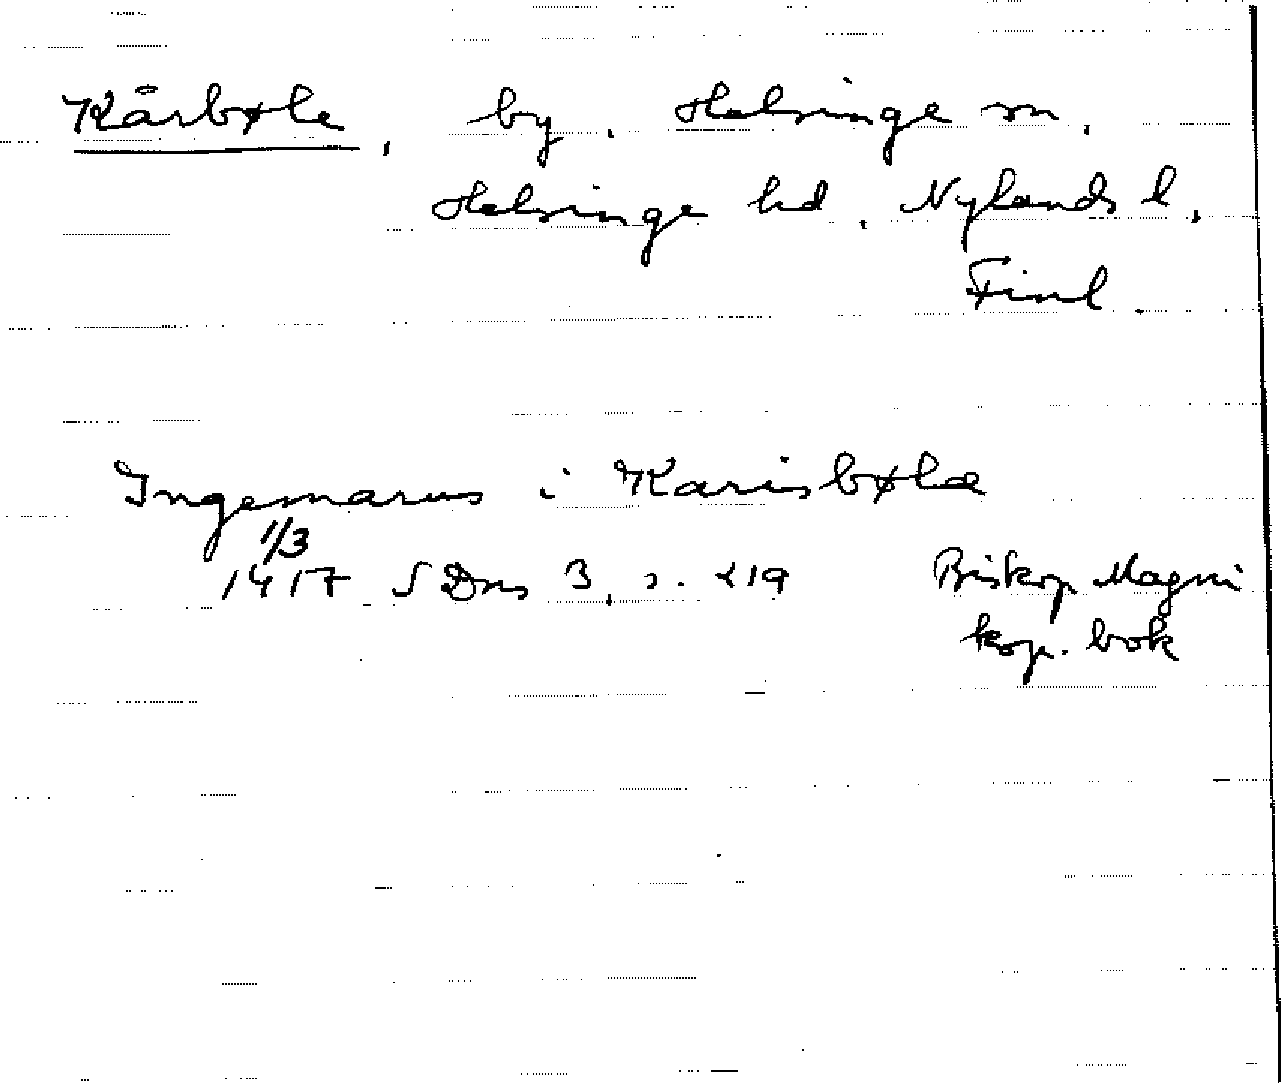 Kårbøle, by, Helsinge sn,
Helsinge hd, Nylands l,
Finl.
Ingemarus i Karisbøle
1/3
1417 SDns 3, s. 219 Biskop Magni
kop. bok